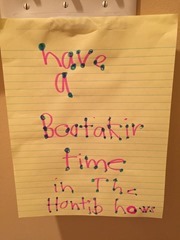 have
a
Bootakir
time
in The
Hontib how